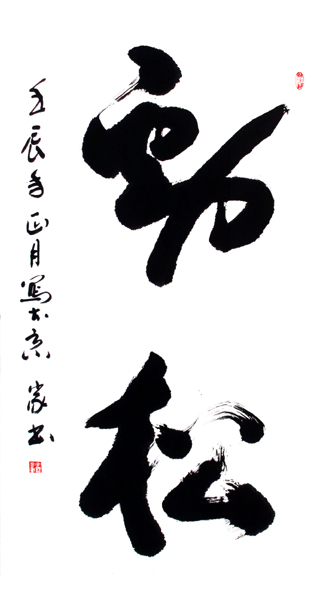 劲松
壬辰年正月写于京 家书